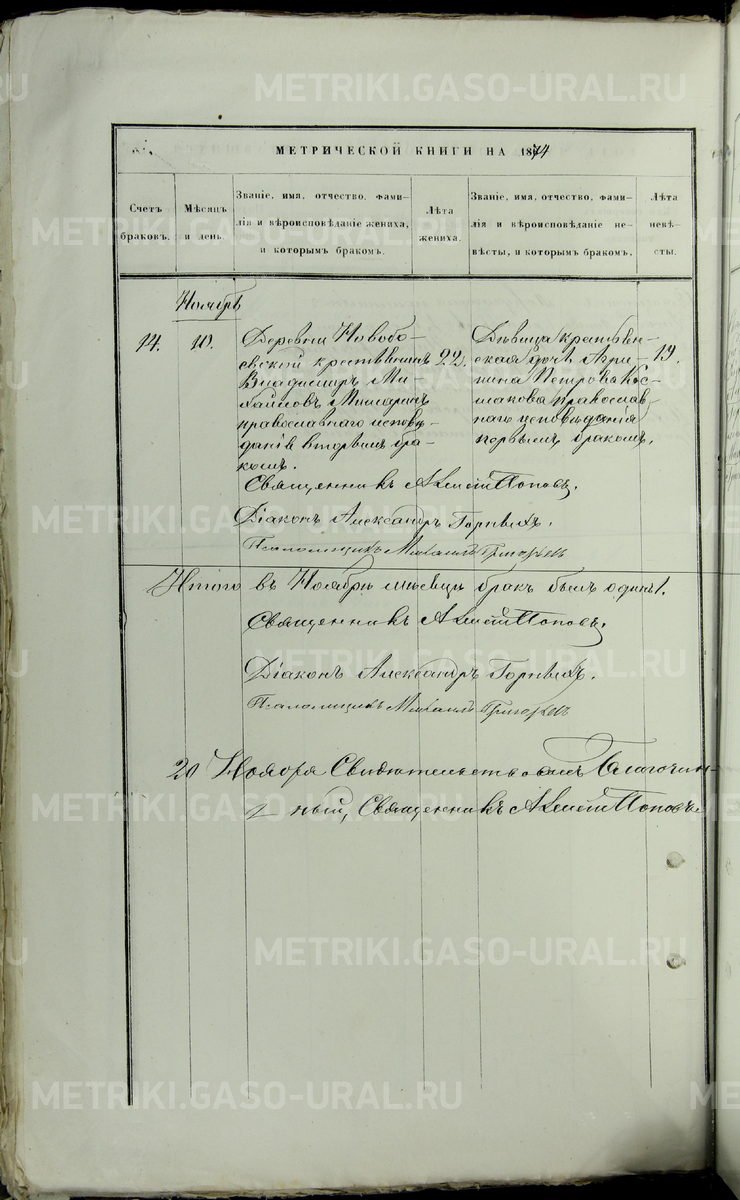 МЕТРИЧЕСКОЙ КНИГИ НА 1874
Счетъ браковъ.
Мѣсяцъ и день.
Званіе, имя, отчество, фами-
лія и вѣроисповѣданіе жениха,
и которымъ бракомъ.
Лѣта жениха.
Званіе, имя, отчество, фами-
лія и вѣроисповѣданіе не-
вѣсты, и которымъ бракомъ.
Лѣта невѣ-
сты.
Ноябрь
14.
10.
Деревни Новобо-
евской крестьянинъ
Владимиръ Ми-
хайловъ
православнаго исповѣ-
данія вторымъ бра-
комъ.
22.
Дѣвица крестьян-
ская дочь Агри-
пина Петрова Кос-
макова православ-
наго исповѣданія
первымъ бракомъ.
19.
Священникъ Алексій Поповъ.
Діаконъ Александръ Горныхъ.
Псаломщикъ Михаилъ Григорьевъ
Итого въ Ноябрѣ мѣсяцѣ бракъ былъ одинъ 1.
Священникъ Алексій Поповъ.
Діаконъ Александръ Горныхъ.
Псаломщикъ Михаилъ Григорьевъ
20 Ноября Свидѣтельствовалъ Благочин-
ный, Священникъ Алексій Поповъ.
METRIKI.GASO-URAL.RU